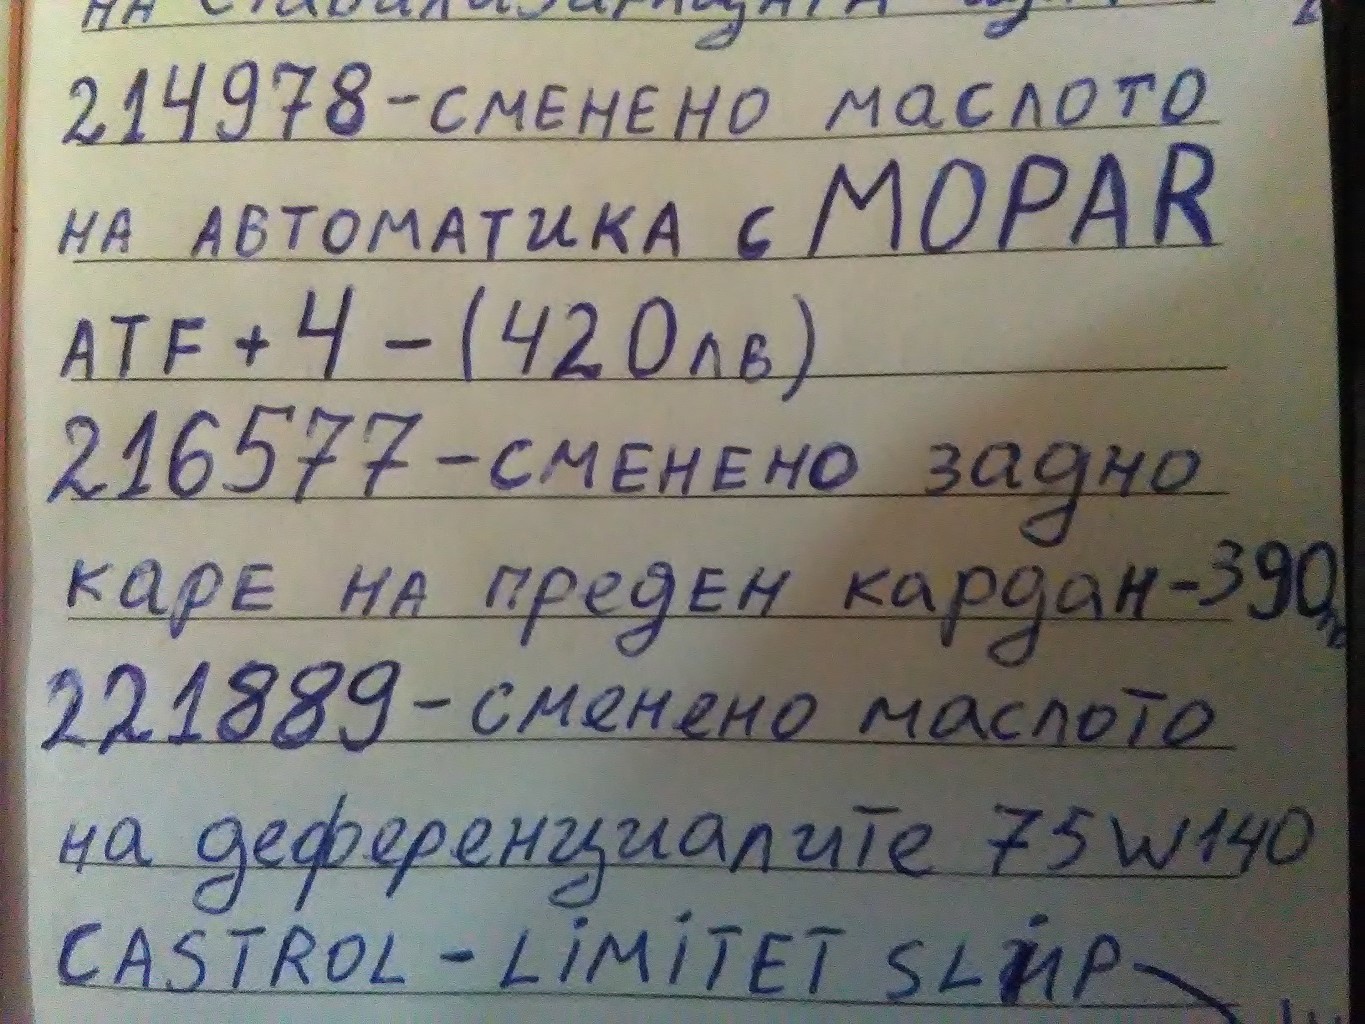 на
214978-сменено маслото
на автоматика с MOPAR
ATF+4-(420лв)
216577-сменено задно
каре на преден кардан-390лв
221889-сменено маслото
на деференциалите 75W140
CASTROL-LiMiTET SLiP